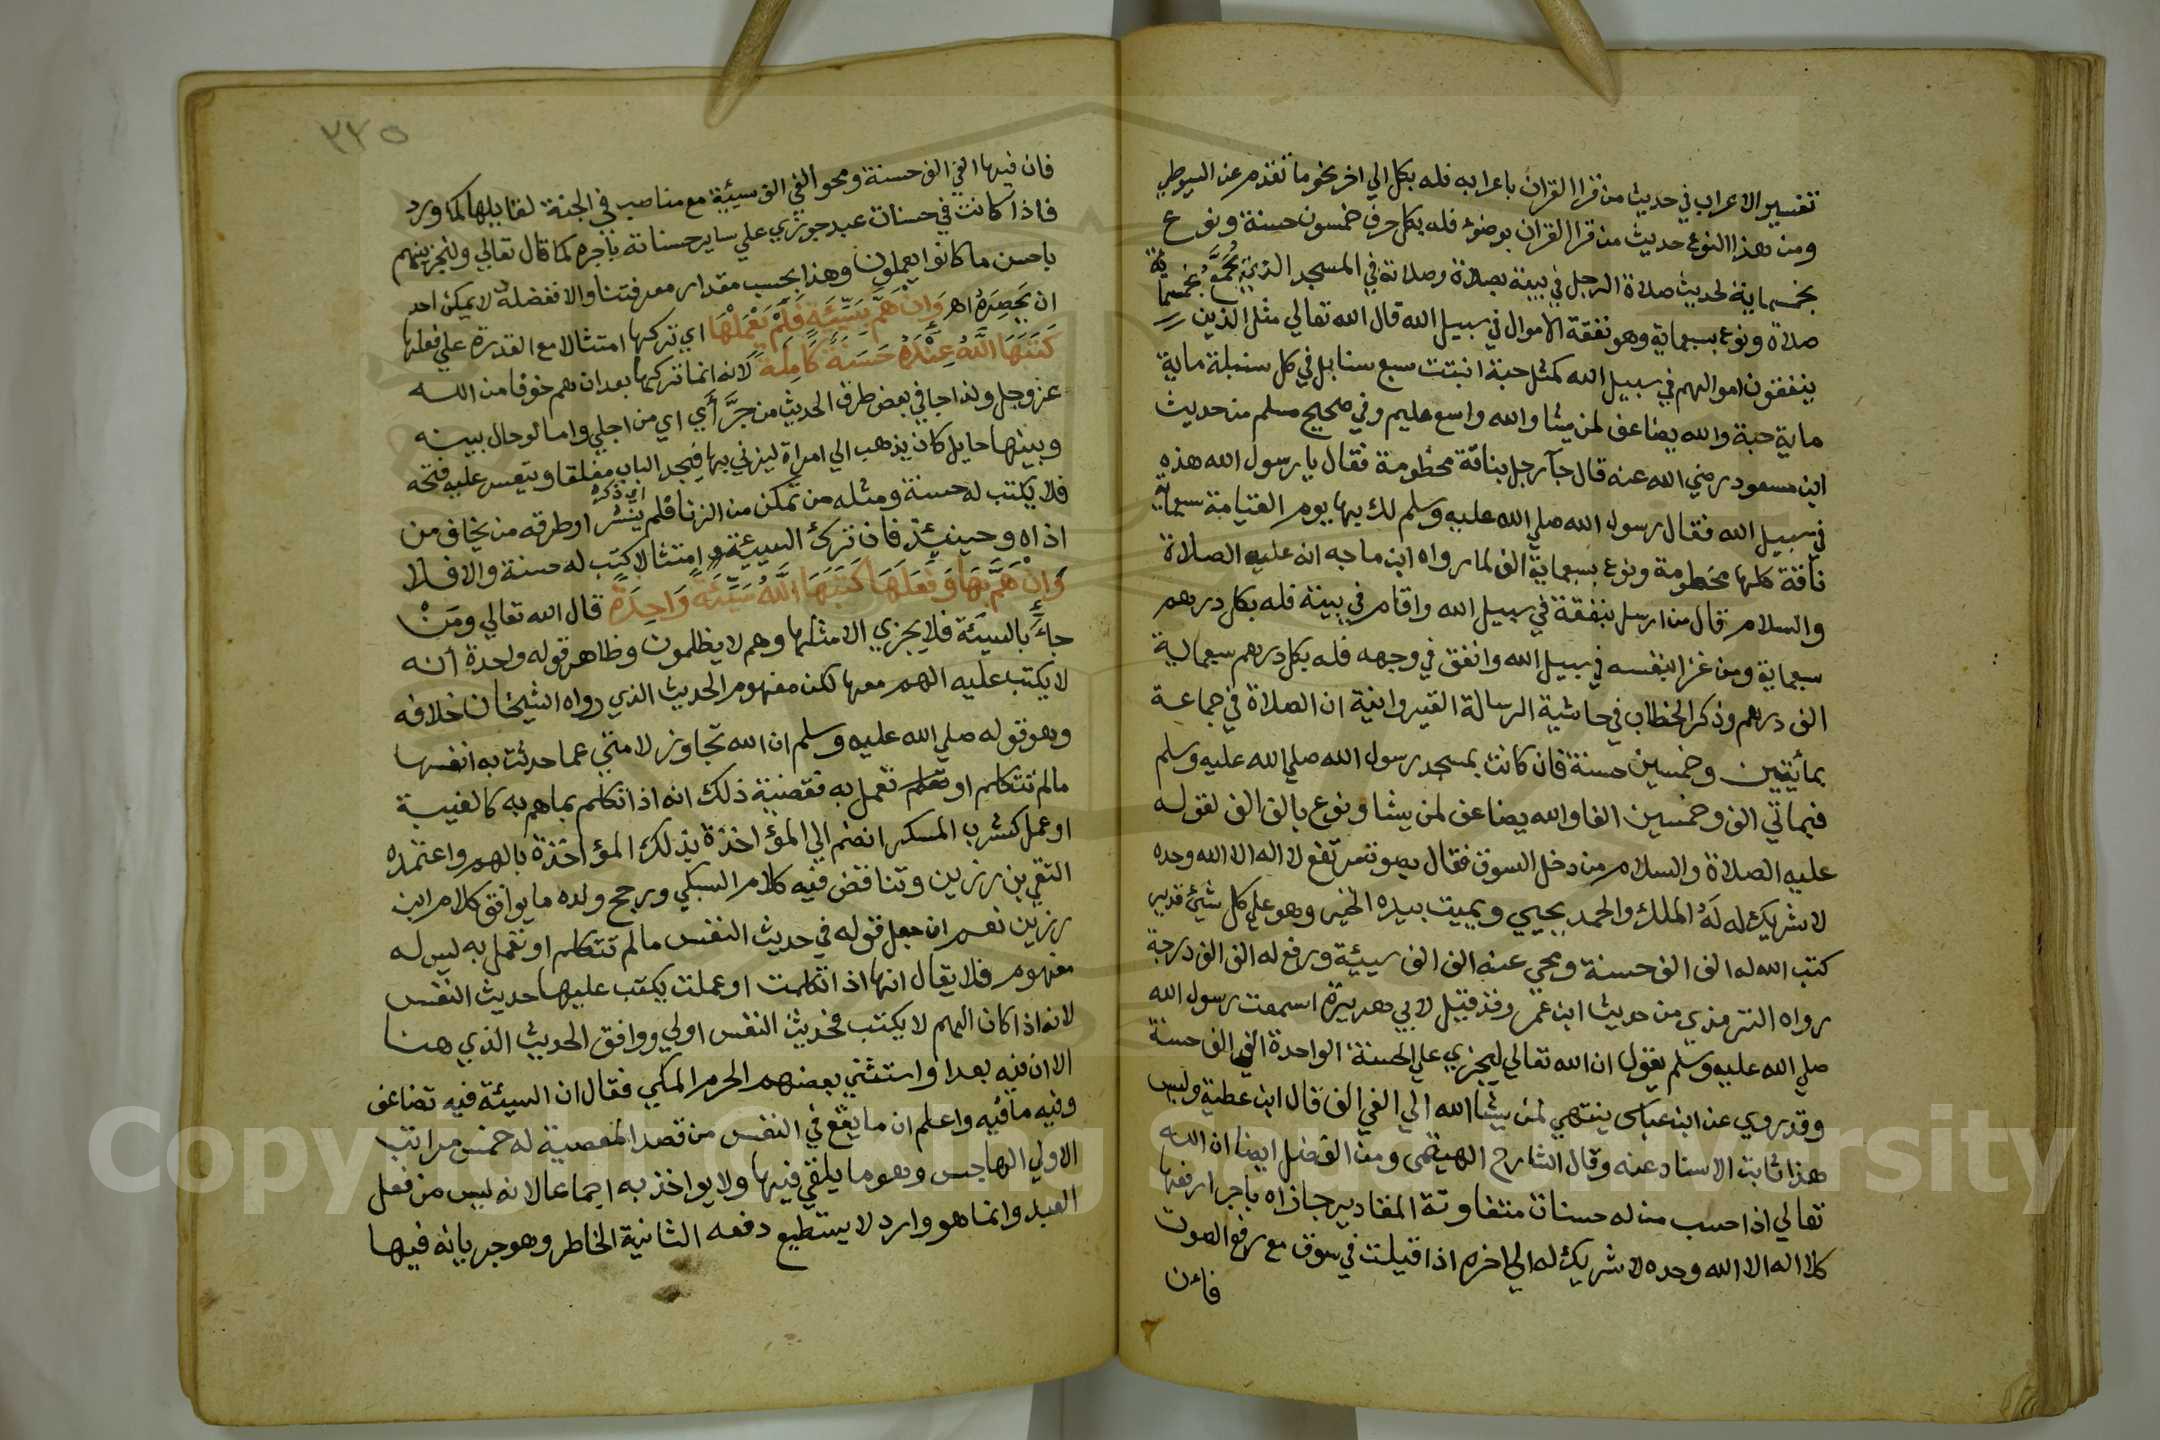 تفسير الاعراب في حديث من قرا القران باعرابه فله بكل الي اخر نحو ما تقدم عن السيوطي
ومن هذا النوع حديث من قرا القران بوضوء فله بكل حرف خمسون حسنة ونوع
بخمسماية لحديث صلاة الرجل في بيته بصلاة وصلاته في المسجد الذي يُجَمَّعُ بخمسماية
صلاة ونوع بسبعماية وهو نفقة الاموال في سبيل الله قال الله تعالي مثل الذين
ينفقون اموالهم في سبيل الله كمثل حبة انبتت سبع سنابل في كل سنبلة ماية
ماية حبة والله يضاعف لمن يشا والله واسع عليم وفي صحيح مسلم من حديث
ابن مسعود رضي الله عنه قال جآ رجل بناقة مخطومة فقال يا رسول الله هذه
في سبيل الله فقال رسول الله صلي الله عليه وسلم لك بها يوم القيامة سبعماية
ناقة كلها مخطومة ونوع بسبعماية الف لما رواه ابن ماجه انه عليه الصلاة
والسلام قال من ارسل بنفقة في سبيل الله واقام في بيته فله بكل درهم
سبعماية ومن غزا بنفسه في سبيل الله وانفق في وجهه فله بكل درهم سبعماية
الف درهم وذكر الحطاب في حاشية الرسالة القيروانية ان الصلاة في جماعة
بمأيتين وخمسين حسنة فان كانت بمسجد رسول الله صلي الله عليه وسلم
فبماتي الف وخمسين الفا والله يضاعف لمن يشا ونوع بالف الف لقوله
عليه الصلاة والسلام من دخل السوق فقال بصوت مرتفع لا اله الا الله وحده
لا شريك له لَهُ الملك والحمد يحيي ويميت بيده الخير وهو علي كل شيئ قدير
كتب الله له الف الف حسنة ومحي عنه الف الف سيئية ورفع له الف الف درجة
رواه الترمذي من حديث ابن عمر وقد قيل لابي هريرة اسمعت رسول الله
صلي الله عليه وسلم يقول ان الله تعالي ليجزي علي الحسنة الواحدة الفي الف حسنة
وقد روي عن ابن عباس ينتهي لمن يشا الله الي الفي الف قال ابن عطية وليس
هذا ثابت الاسناد عنه وقال الشارح الهيتمي ومن الفضل ايضا ان الله
تعالي اذا حسب من له حسنات متفاوتة المقادير جازاه باجر ارفعها
كلا اله الا الله وحده لا شريك له الي اخره اذا قيلت في سوق مع رفع الصوت
فان
٢٢٥
فان فيها الفي الف حسنة ومحو الفي الف سيئية مع مناصب في الجنة لقايلها كما ورد
فاذا كانت في حسنات عبد جوزي علي ساير حسناته باجره كما قال تعالي ولنجزينهم
باحسن ما كانوا يعملون وهذا بحسب مقدار معرفتنا والا ففضله لا يمكن احد
ان يَحصِرَهُ اهـ وَاِنْ هَمَّ بِسَيِّئَةٍ فَلَمْ يَعْمَلْهَا اي تركها امتثالا مع القدرة علي فعلها
كَتَبَهَا اللَّهُ عِنْدَهُ حَسَنَةً كَامِلَةً لانه انما تركها بعد ان هم خوفا من الله
عز وجل ولذا جا في بعض طرق الحديث من جرَّأي اي من اجلي واما لو حال بينه
وبينها حايل كان يذهب الي امراة ليزني بها فيجد الباب مغلقا ويعسر عليه فتحه
فلا يكتب له حسنة ومثله من تمكن من الزنا فلم ينتشر اي ذكره او طرقه من يخاف من
اذاه وحينيذ فان ترك السيئة امتثالا كتب له حسنة والا فلا
وَاِنْ هَمَّ بِهَا وَفَعَلَهَا كَتَبَهَا اللَّهُ سَيِّئَةً وَاحِدَةً قال الله تعالي ومَنْ
جاءَ بالسيئة فلا يجزي الا مثلها وهم لا يظلمون وظاهر قوله واحدة انه
لا يكتب عليه الهم معها لكن مفهوم الحديث الذي رواه الشيخان خلافه
وهو قوله صلي الله عليه وسلم ان الله تجاوز لامتي عما حدثت به انفسها
مالم تتكلم او تعمل به فقضية ذلك انه اذا تكلم بما هم به كالغيبة
او عمل كشرب المسكر انضم الي المؤاخذة بذلك المؤاخذة بالهم واعتمده
التقي بن رزين وتناقض فيه كلام السبكي ورجح ولده ما يوافق كلام ابن
رزين نعم ان جعل قوله في حديث النفس مالم تتكلم او تعمل به ليس له
مفهوم فلا يقال انها اذا تكلمت او عملت يكتب عليها حديث النفس
لانه اذا كان الهم لا يكتب فحديث النفس اولي ووافق الحديث الذي هنا
الا ان فيه بعدا واستثني بعضهم الحرم المكي فقال ان السيئة فيه تضاعف
وفيه ما فيه واعلم ان ما يقع في النفس من قصد المعصية له خمس مراتب
الاولي الهاجس وهو ما يلقي فيها ولا يواخذ به اجماعا لانه ليس من فعل
العبد وانما هو وارد لا يستطيع دفعه الثانية الخاطر وهو جريانه فيها
Copyright © King Saud University